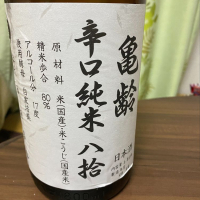 亀齢
辛口純米八拾
原材料 米(国産)・米こうじ(国産米)
精米歩合 80%
アルコール分 17度
日本酒